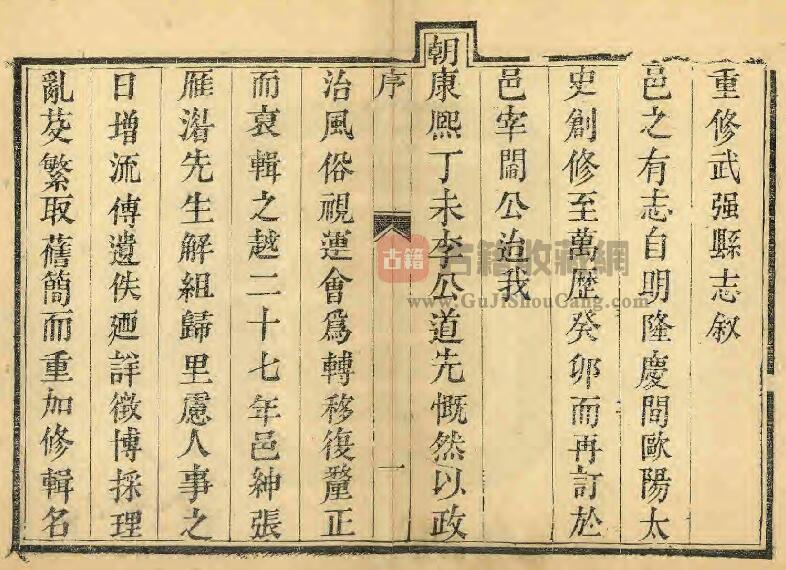 重修武强縣志叙
邑之有志自明隆慶間歐陽太
史創修至萬歷癸卯而再訂於
邑宰閻公迨我
朝康熙丁未李公道先慨然以政
序 一
治風俗視運會爲轉移復釐正
而裒輯之越二十七年邑紳張
雁湝先生解組歸里慮人事之
日增流傳遺佚廼詳徵博採理
亂芟繁取舊簡而重加修輯名
古籍
古籍收藏網
www.GuJiShouCang.com